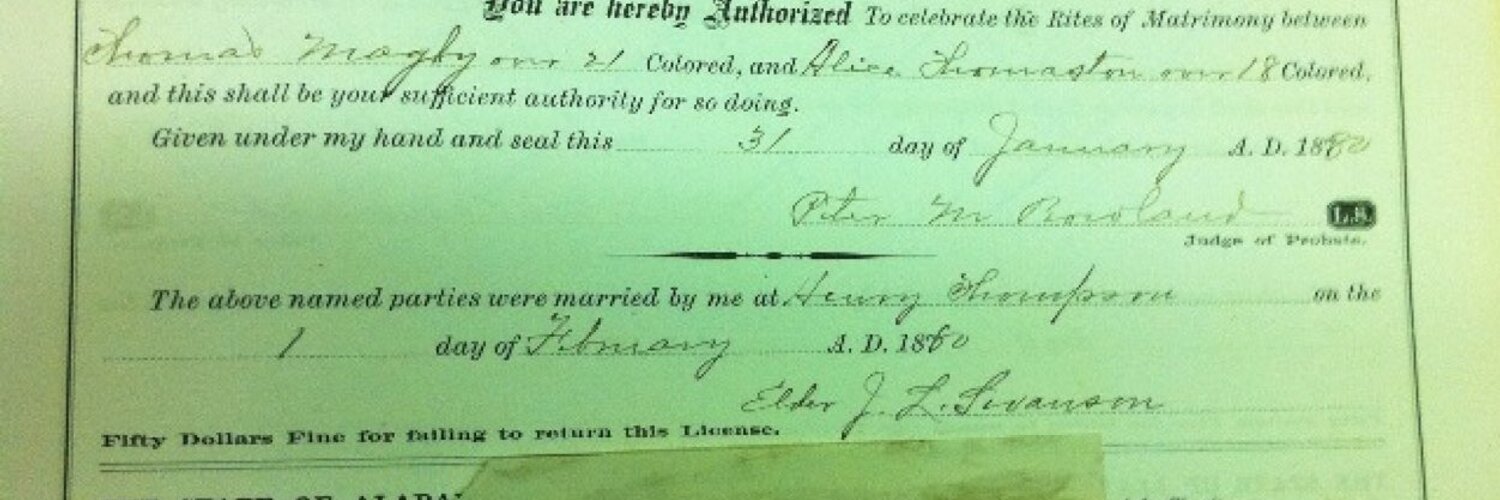 You are hereby Authorized To celebrate the Rites of Matrimony between
Thomas Magby over 21 Colored, and Alice Thomaston over 18 Colored,
and this shall be your sufficient authority for so doing.
Given under my hand and seal this 31 day of January A. D. 1880
Peter M Rowland L.S.
Judge of Probate.
The above named parties were married by me at Henry Thompson on the
1 day of February A. D. 1880
Elder J. L. Swanson
Fifty Dollars Fine for failing to return this License.
STATE OF